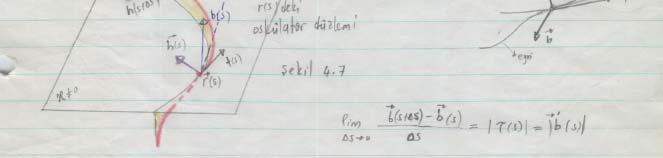 n(s+Δs)
b(s)
r(s) deki
oskülatör düzlemi
n(s)
t(s)
r(s)
Şekil 4.7
ϰ≠0
b
eğri
lim Δs→0 b(s+Δs) - b(s) / Δs = |τ(s)| = |b'(s)|